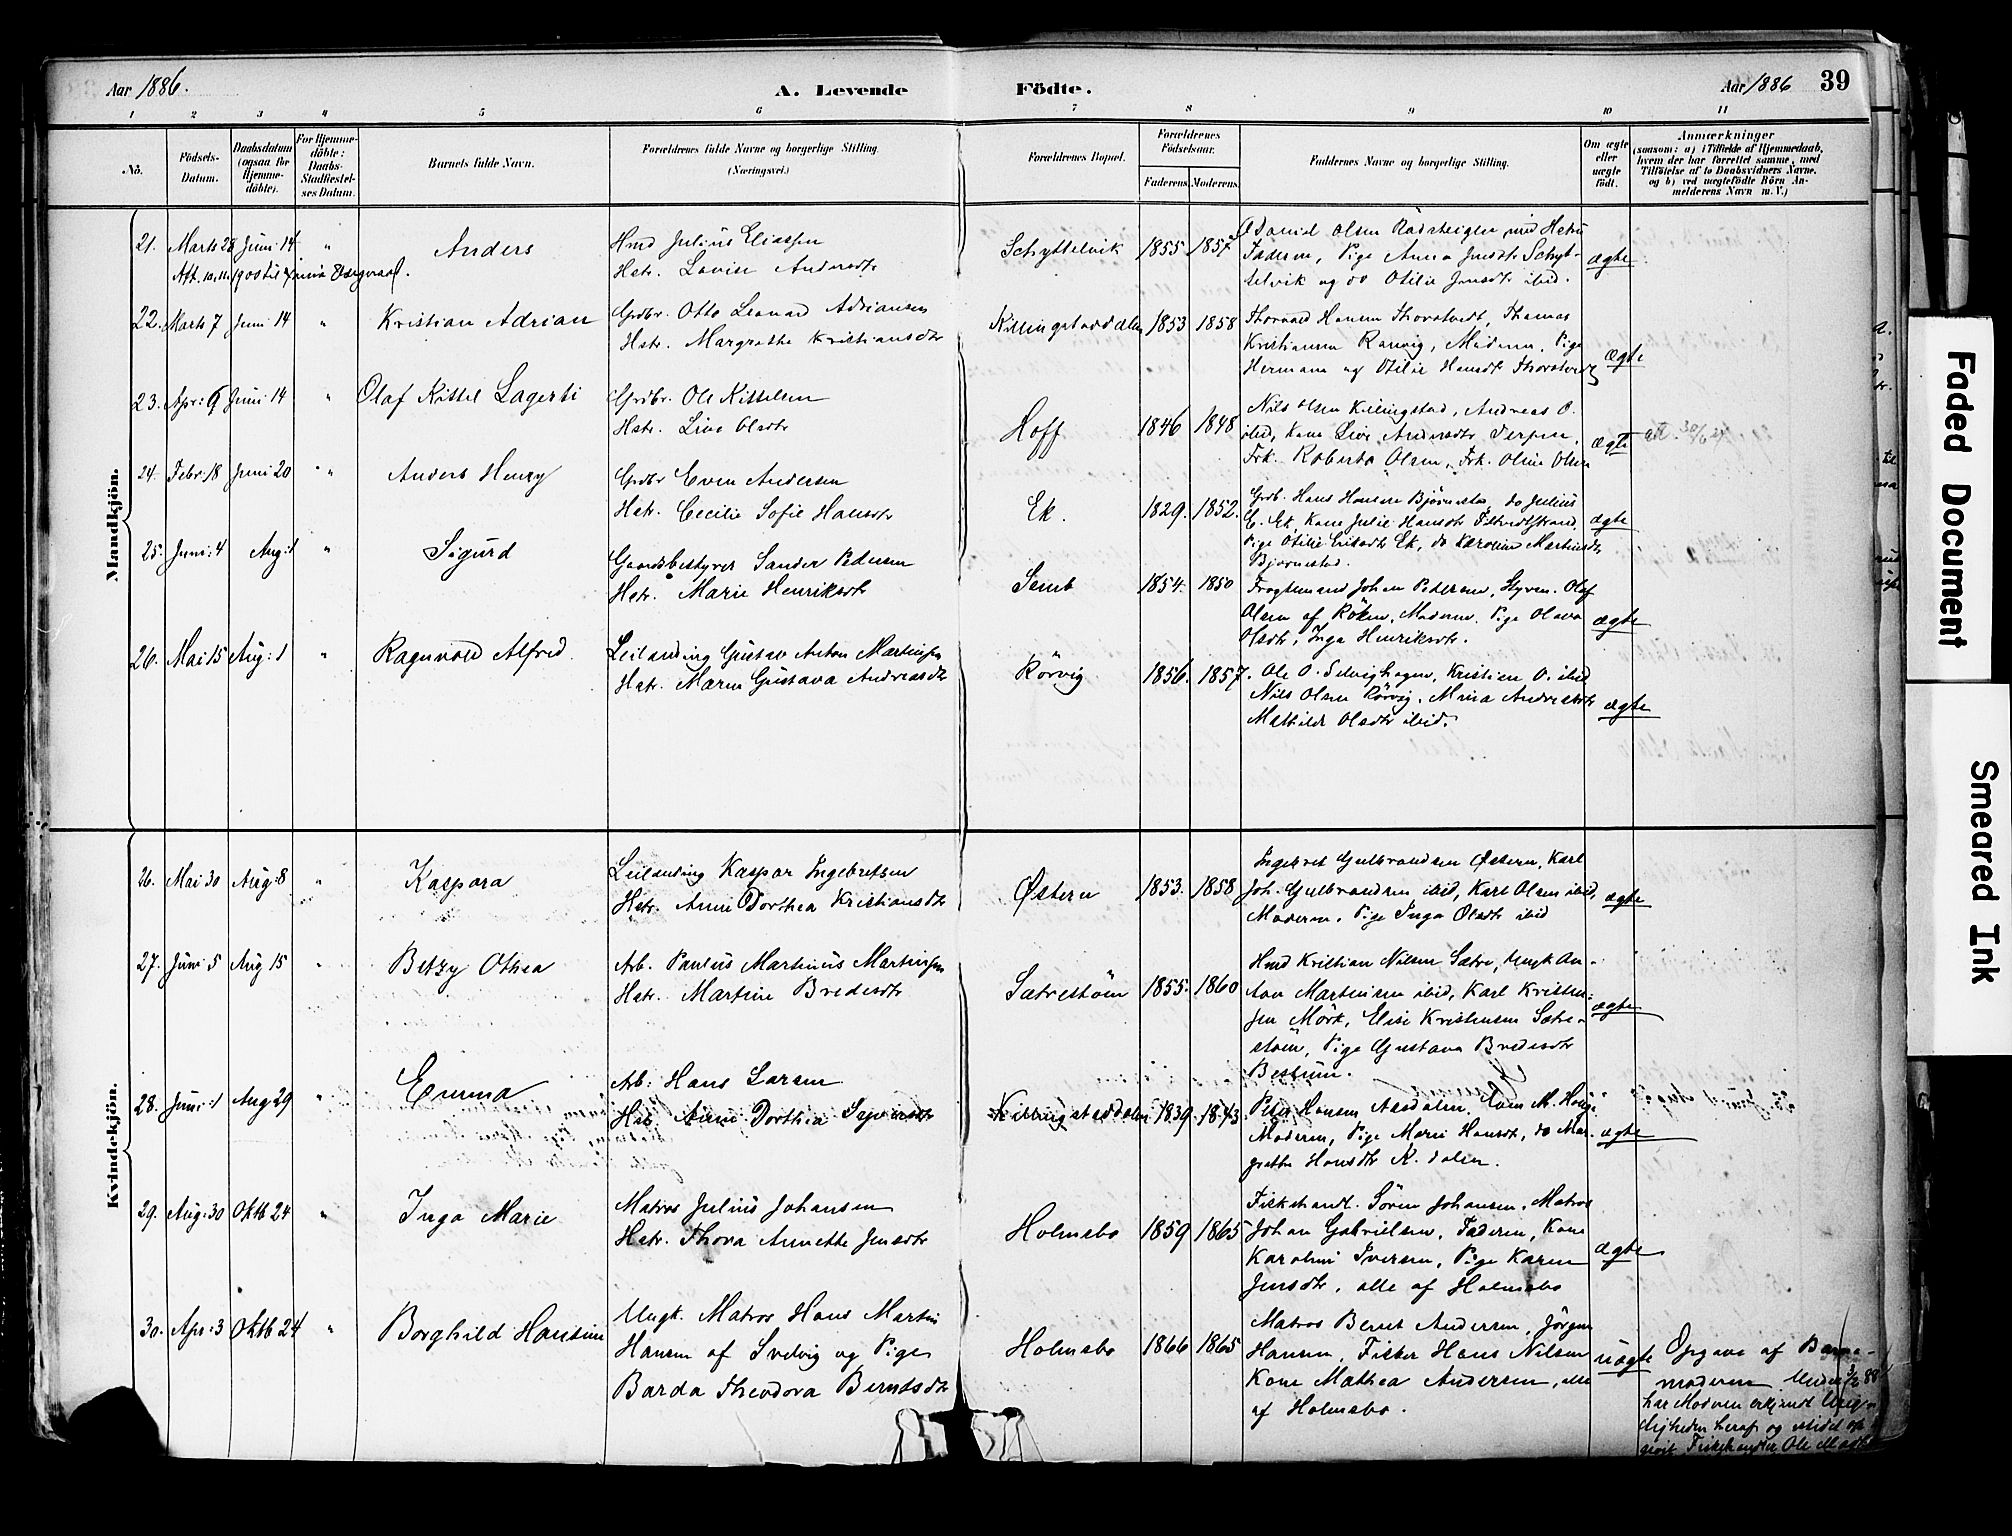 Aar 1886.
A. Levende Födte.
Aar 1886 39
1 2 3 4 5 6 7 8 9 10 11
No.
Födsels-
Datum.
Daabsdatum
(ogsaa for
Hjemme-
döbte).
For Hjemme-
döbte:
Daabs-
Stadfæstel-
ses Datum.
Barnets fulde Navn.
Forældrenes fulde Navne og borgerlige Stilling.
(Næringsvei.)
Forældrenes Bopæl.
Forældrenes
Födselsaar.
Faderens. Moderens.
Faddernes Navne og borgerlige Stilling.
Om ægte
eller
uægte
födt.
Anmærkninger
(saasom: a) i Tilfælde af Hjemmedaab,
hvem der har forrettet samme, med
Tilföielse af to Daabsvidners Navne.
og b) ved uægtefödte Börn An-
melderens Navn m. V.)
Mandkjön.
21. Marts 28 Juni 14 " Anders
Hmd Julius Eliassen
Hstr. Lovise Andersdtr
Schyttelvik 1855 1857
Daniel Olsen Rödsteigen med Hstr
Faderen, Pige Anna Jensdtr Schyt-
telvik og do Otilie Jensdtr ibid.
ægte
22. Marts 7 Juni 14 " Kristian Adrian
Grdbr. Otto Leonard Adriansen
Hstr. Margrethe Kristiansdtr
Killingstaddalen 1853 1858
Thorvald Hansen Thorstvedt, Thomas
Kristiansen Ranvig, Moderen, Pige
Hermana og Otilie Hansdtr Thorstvedt
ægte
23. Apr: 9 Juni 14 " Olaf Kittel Lagerti
Grdbr. Ole Kittelsen
Hstr. Live Olsdtr
Hoff 1846 1848
Nils Olsen Killingstad, Andreas O.
ibid, Kone Live Andersdtr Jerpen,
Frk. Roberta Olsen, Frk. Oline Olsen
ægte
24. Febr 18 Juni 20 " Anders Henry
Grdbr Even Andersen
Hstr. Cecilie Sofie Hansdtr
Ek. 1829. 1852.
Grdb. Hans Hansen Björnestad, do Julius
E. Ek, Kone Julie Hansdtr
Pige Otilie Eriksdtr Ek, do Karoline Martinsdtr
Bjørnestad.
ægte
25. Juni: 4 Aug: 1 " Sigurd
Gaardsbestyrer Sander Pedersen
Hstr. Marie Henriksdtr
Semb 1854. 1850
Fragtemand Johan Petersen, Styrm. Olaf
Olsen af Röken, Moderen, Pige Olava
Olsdtr, Inga Henriksdtr.
ægte
26. Mai 15 Aug: 1 " Ragnvald Alfred
Leilænding Gustav Anton Martinsen
Hstr. Maren Gustava Andreasdtr
Rörvig 1856. 1857.
Ole O. Selvighagen, Kristian O. ibid
Nils Olsen Rörvig, Mina Andreasdtr
Mathilde Olsdtr ibid.
ægte
Kvindekjön.
26. Mai 30 Aug: 8 " Kaspara
Leilænding Kaspar Ingebretsen
Hstr. Anne Dorthea Kristiansdtr
Østern 1853. 1858
Ingebret Gulbrandsen Østern, Karl
Joh. Gulbrandsen ibid, Karl Olsen ibid,
Moderen, Pige Inga Olsdtr ibid
ægte
27. Juni 5 Aug 15 " Betzy Othea
Arb. Paulus Martinius Martinsen
Hstr. Martine Bredesdtr
Sætrestöen 1855. 1860
Hmd Kristian Nilsen Sætre, Ungk An-
ton Martinsen ibid, Karl Kristen-
sen Mörk, Elise Kristensen Sætre-
stöen, Pige Gustava Bredesdtr
Bestum.
ægte
28. Juni: 1 Aug 29 " Emma
Arb: Hans Larsen
Hstr. Anne Dorthea
Killingstaddalen 1839. 1843.
Peter Hansen Aasdalen, Even M. Hauge
Moderen, Pige Marie Hansdtr, do Mar-
grethe Hansdtr K. dalen.
ægte
29. Aug: 30 Oktb 24 " Inga Marie
Matros Julius Johansen
Hstr. Thora Annette Jensdtr
Holmsbo 1859 1865
Fiskehandl. Sören Johansen, Matros
Johan Gabrielsen, Faderen, Kone
Karoline Iversen, Pige Karen
Jensdtr, alle af Holmsbo
ægte
30. Apr: 3 Oktb 24 " Borghild Hansine
Ungk. Matros Hans Martin
Hansen af Svelvig og Pige
Barda Theodora Berntsdtr
Holmsbo 1866 1865
Matros Bernt Andersen, Jörgen
Hansen, Fisker Hans Nilsen
Kone Mathea Andersen, alle
af Holmsbo.
uægte
Opgave af Barne-
moderen. Under 3/2 88
har Moderen erkjendt Urig-
tigheden heraf og istedet op-
givet Fiskehandler Ole
Faded Document
Smeared Ink